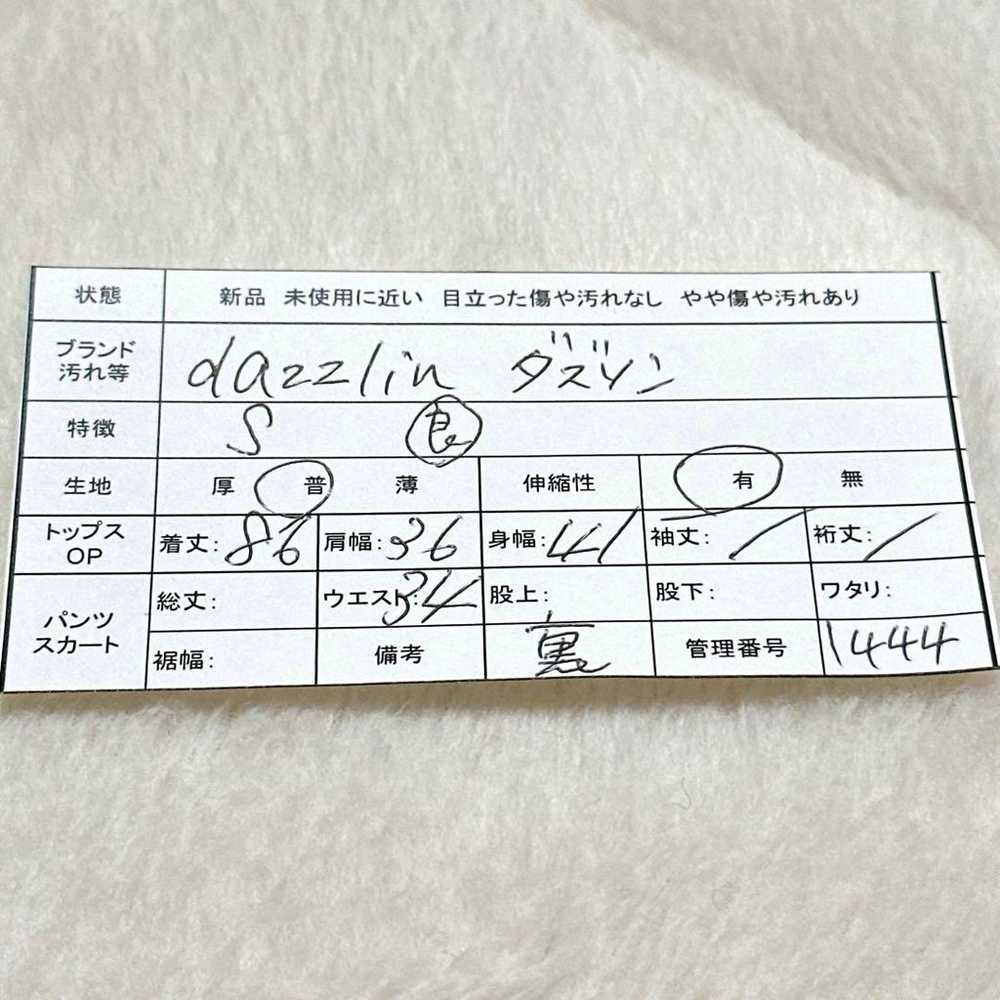 状態 新品 未使用に近い 目立った傷や汚れなし やや傷や汚れあり
ブランド
汚れ等 dazzlin ダズリン
特徴 S 良
生地 厚 普 薄 伸縮性 有 無
トップス
OP 着丈:86 肩幅:36 身幅:41 袖丈:/ 裄丈:/
パンツ
スカート 総丈: ウエスト:34 股上: 股下: ワタリ:
裾幅: 備考 裏 管理番号 1444